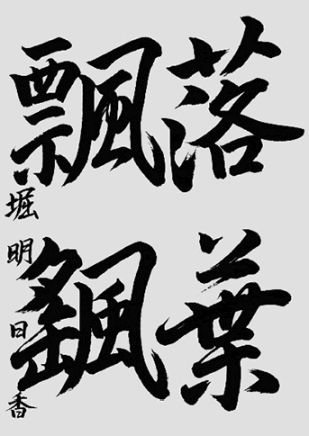 落葉
飄颻
堀明日香